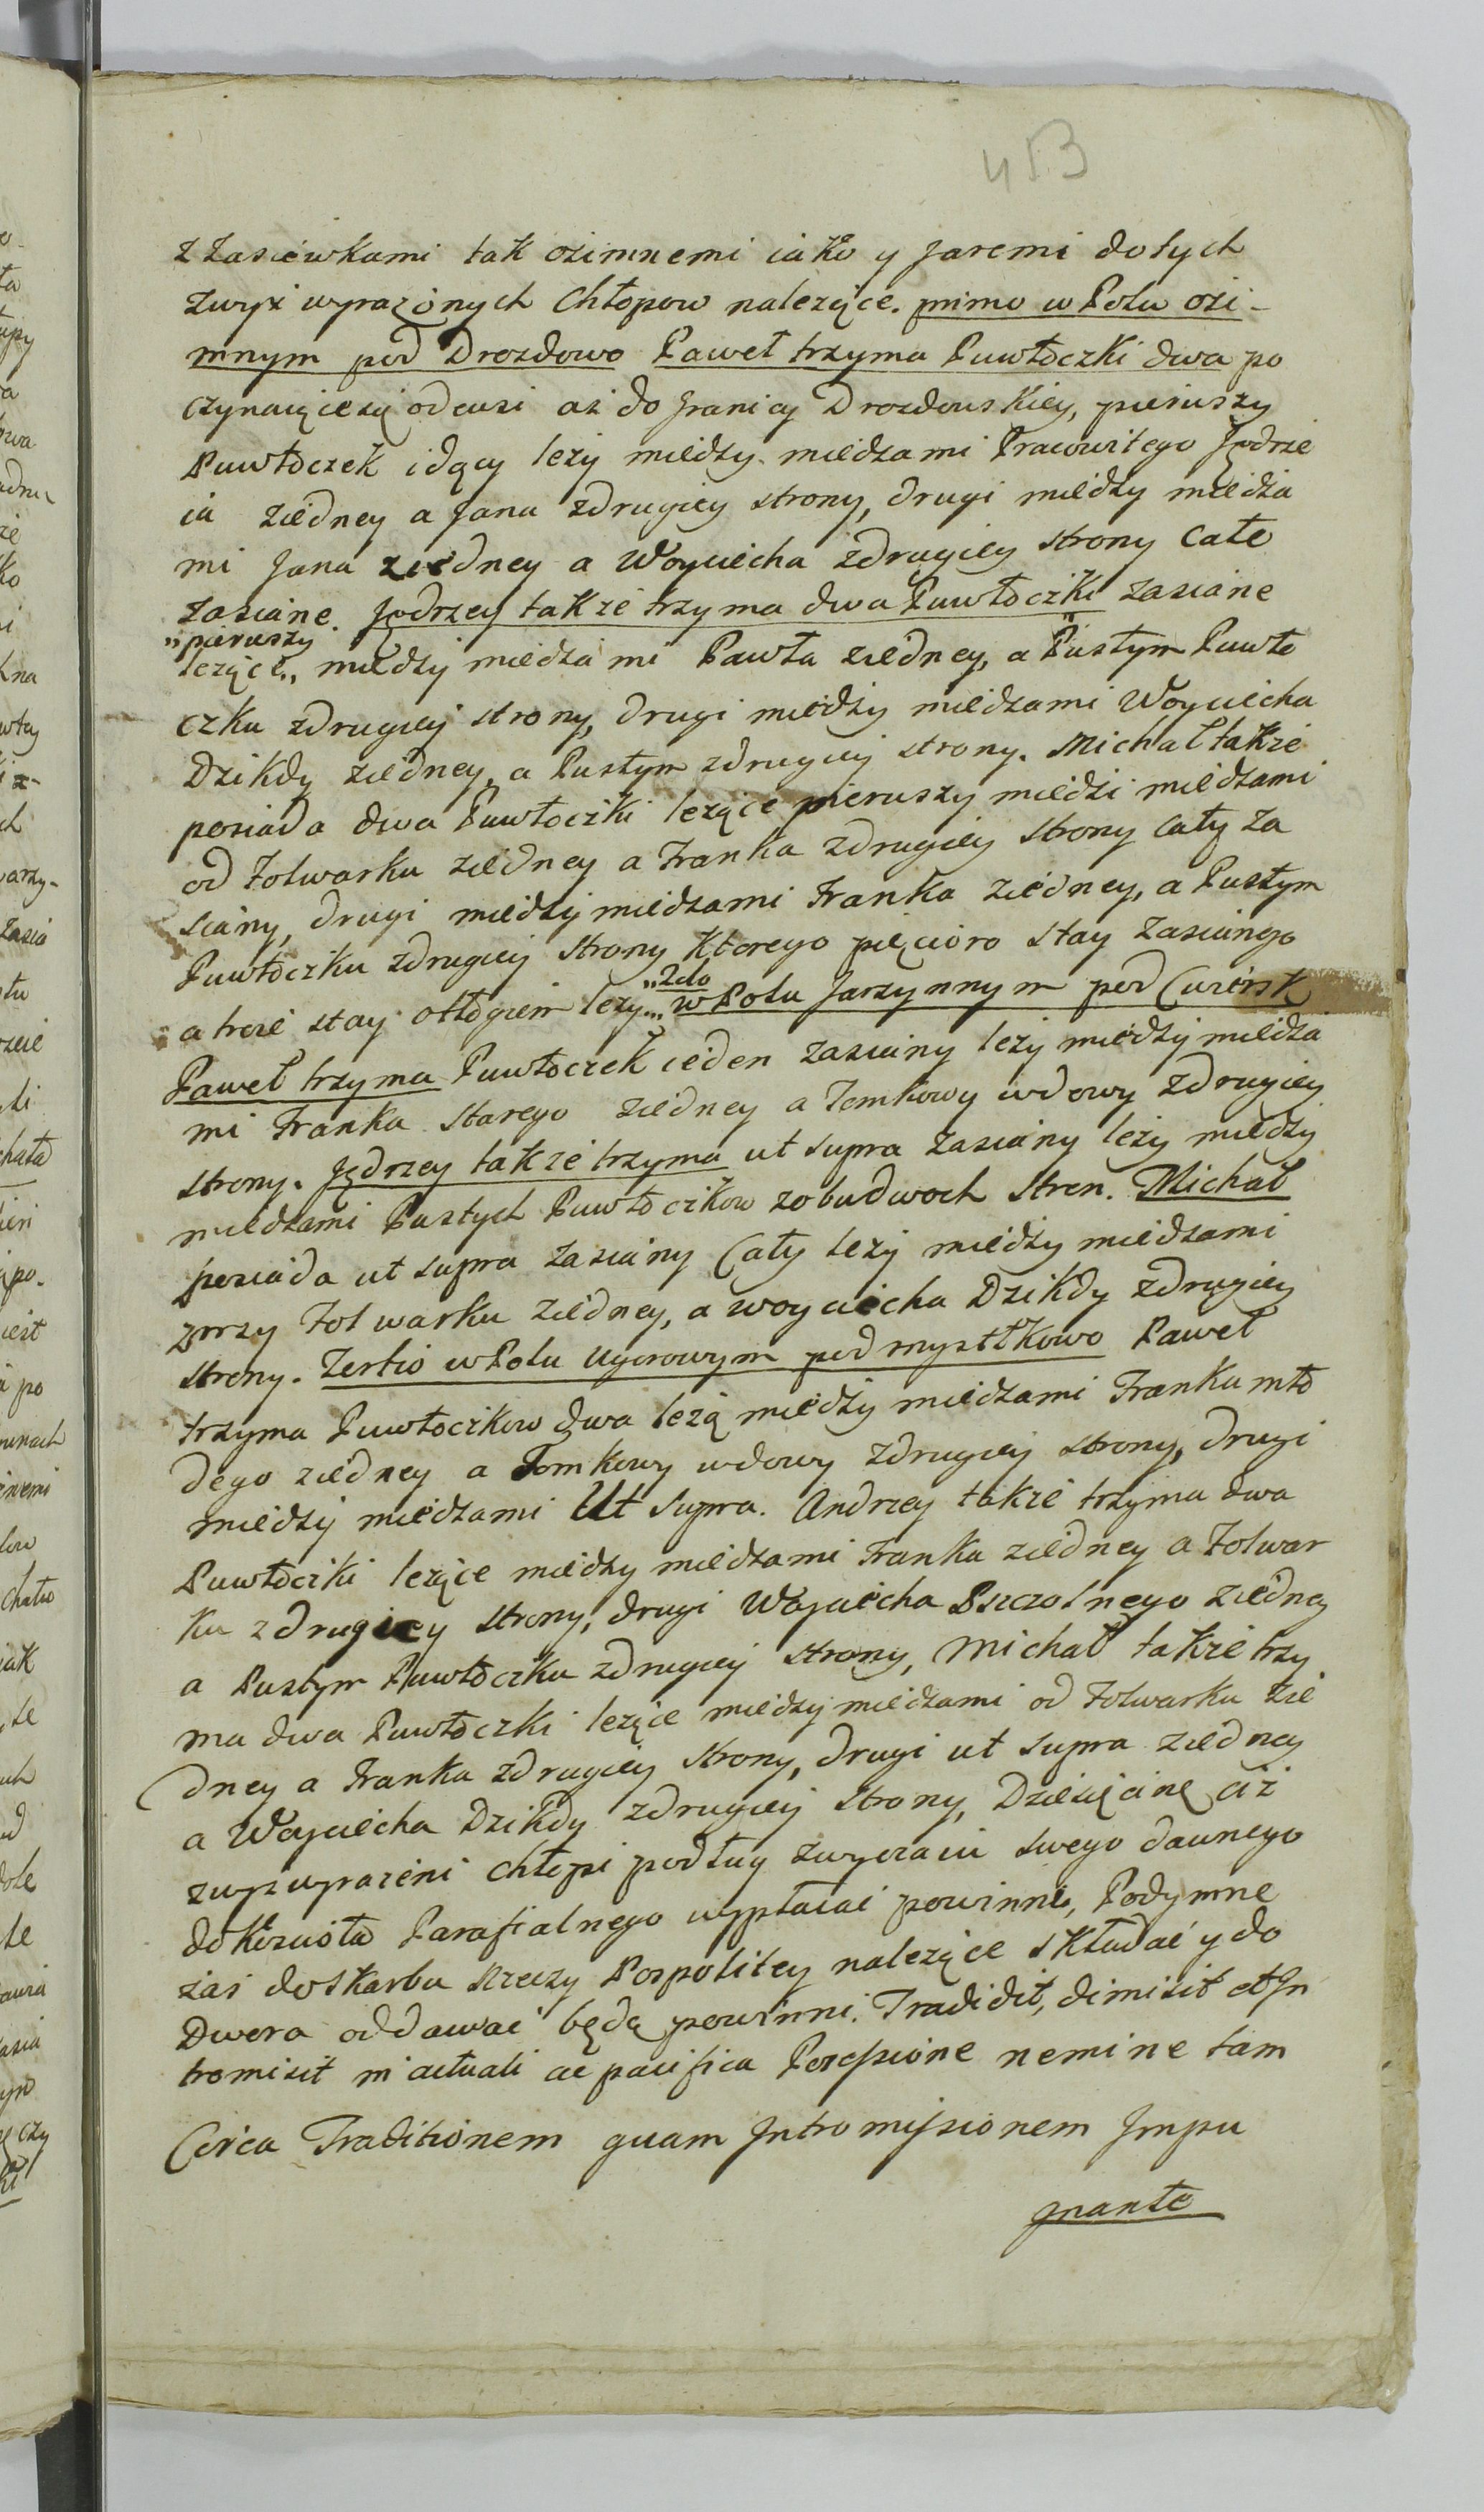 453
z Zasiewkami tak ozimnemi iako y Jaremi dotych
zwyż wyrażonych Chłopow należące. primo w Polu ozi-
mnym pod Drozdowo Paweł trzyma Puwłoczki dwa po
czynaiące się od ausi aż do Granicy Drozdowskiey, pierwszy
Puwłoczek idący leży miedzy miedzami Pracowitego Jędrze
ia ziedney a Jana zdrugiey strony, drugi miedzy miedza
mi Jana ziedney a Woyciecha zdrugiey strony Całe
Zasiane. Jędrzey także trzyma dwa Puwłoczki zasiane
"pierwszy
leżące,, miedzy miedzami Pawła ziedney, a Pustym Puwło
czku zdrugiey strony, drugi miedzy miedzami Woyciecha
Dzikdy ziedney, a Pustym zdrugiey strony. Michał także
posiada dwa Puwłoczki leżące pierwszy miedzi miedzami
od Folwarku ziedney a Franka zdrugiey strony cały za
siany, drugi miedzy miedzami Franka ziedney, a Pustym
Puwłoczku zdrugiey strony ktorego pięcioro stay zasianego
"2do
a troie stay odłogiem leży,, w Polu Jarzynnym pod
Paweł trzyma Puwłoczek ieden zasiany leży miedzy miedza
mi Franka Starego ziedney a Tomkowy wdowy zdrugiey
strony. Jędrzey także trzyma ut supra zasiany leży miedzy
miedzami Pustych Puwłoczkow zobudwoch Stron. Michał
posiada ut supra zasiany Cały leży miedzy miedzami
przy Folwarku ziedney, a woyciecha Dzikdy zdrugiey
strony. Tertio w Polu Ugorowym pod mystkowo Paweł
trzyma Puwłoczkow dwa leżą miedzy miedzami Franka mło
dego ziedney a Tomkowy wdowy zdrugiey strony, drugi
miedzy miedzami Ut Supra. Andrzey także trzyma dwa
Puwłoczki leżące miedzy miedzami Franka ziedney a Folwar
ku zdrugiey strony, drugi Woyciecha Pszczolnego ziedney
a Pustym Puwłoczku zdrugiey strony, Michał także trzy
ma dwa Puwłoczki leżące miedzy miedzami od Folwarku zie
dney a Franka zdrugiey strony, drugi ut supra ziedney
a Woyciecha Dzikdy zdrugiey strony, Dziesięcinę ciż
zwyżwyrażeni chłopi podług zwyczaiu swego dawnego
do Kościoła Parafialnego wypłacać powinni, Podymne
zaś do skarbu Rzeczy Pospolitey należące składać y do
Dwora oddawać będą powinni. Tradidit, dimisit et In
tromisit in actuali ac pacifica Possessione nemine tam
Circa Traditionem quam Intromissionem Impu
gnante